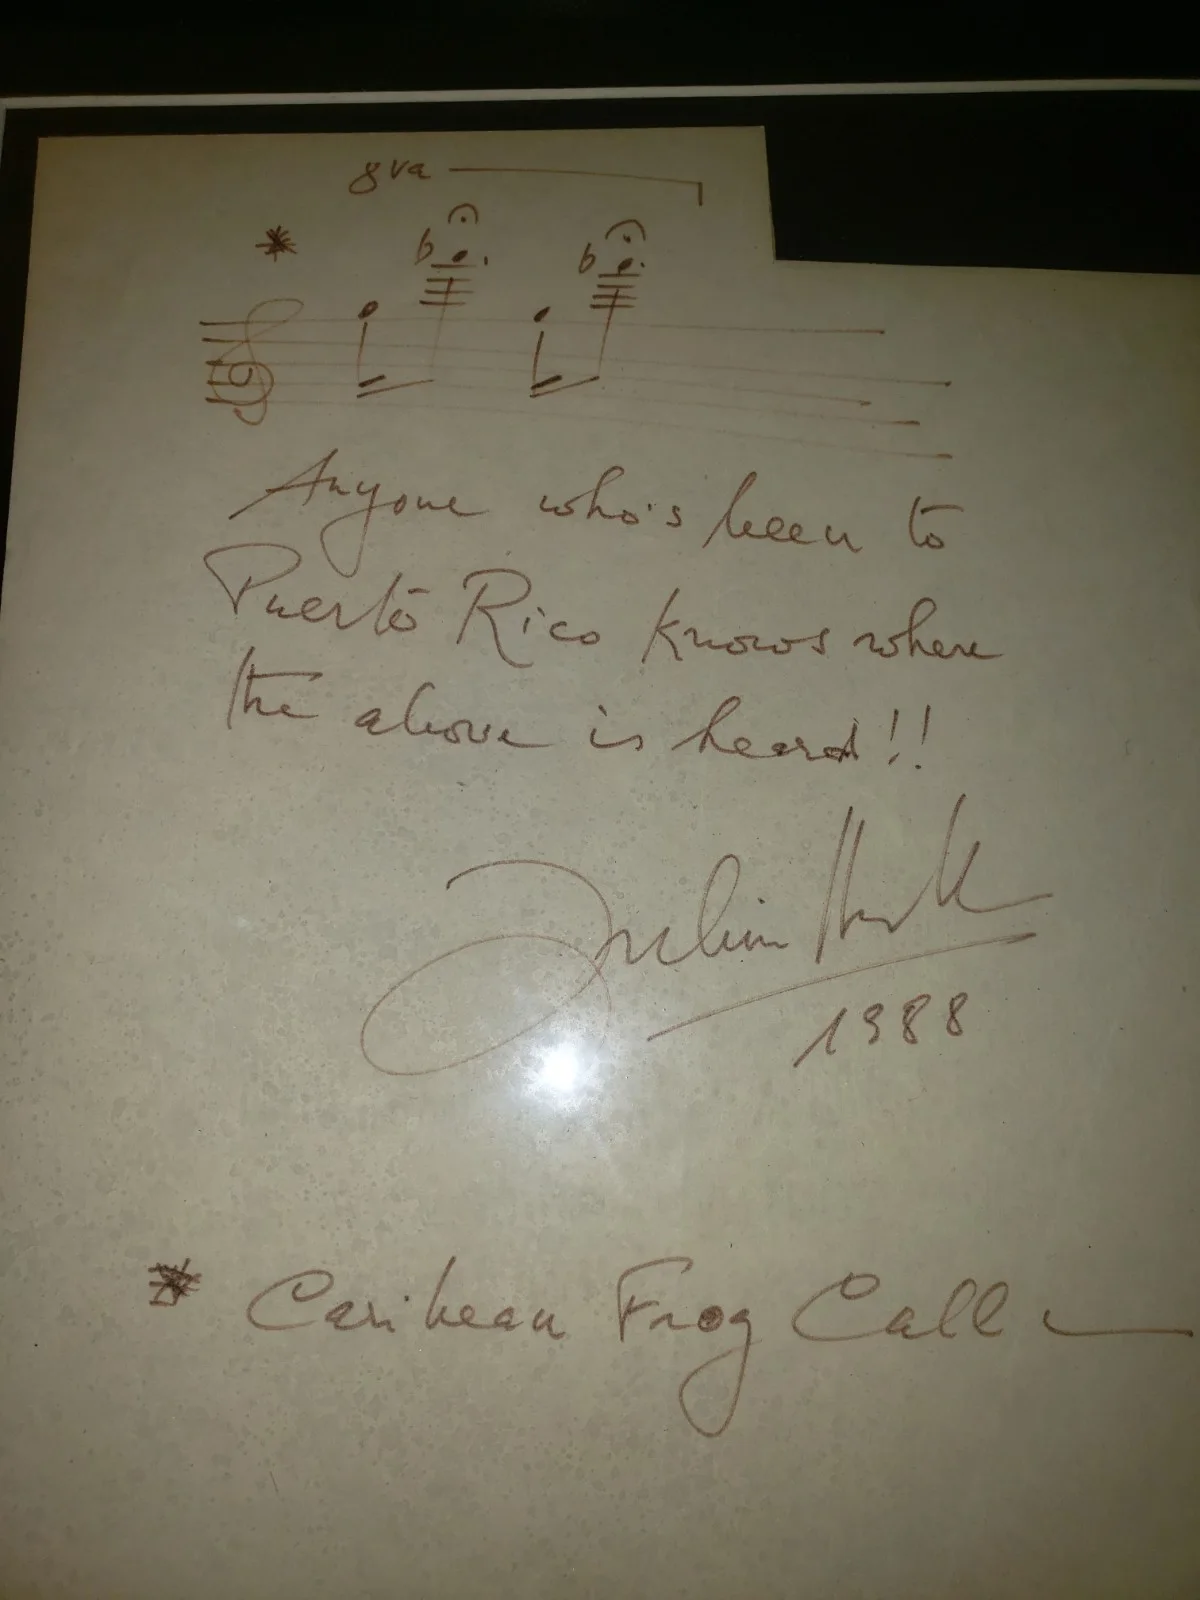 8va
*
Anyone who's been to
Puerto Rico knows where
the above is heard!!
1988
* Caribean Frog Call